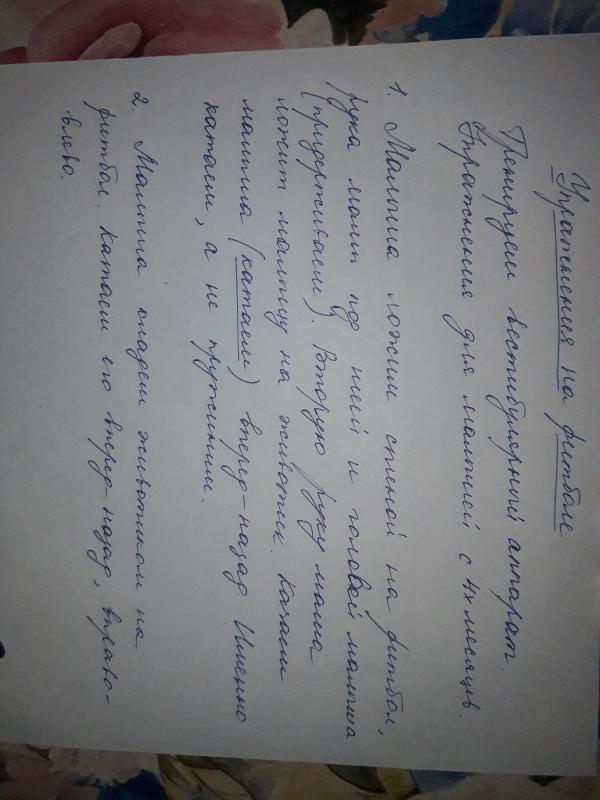 Упражнения на фитболе
Тренируем вестибулярный аппарат.
Упражнения для малышей с 4х месяцев.
1. Малыша ложим спиной на фитбол,
рука мамы под шеей и головой малыша
(придерживаем). Вторую руку мама
ложит малышу на животик. Катаем
малыша (катаем) вперед-назад. Именно
катаем, а не пружиним.
2. Малыша кладем животиком на
фитбол. Катаем его вперед-назад, вправо-
влево.